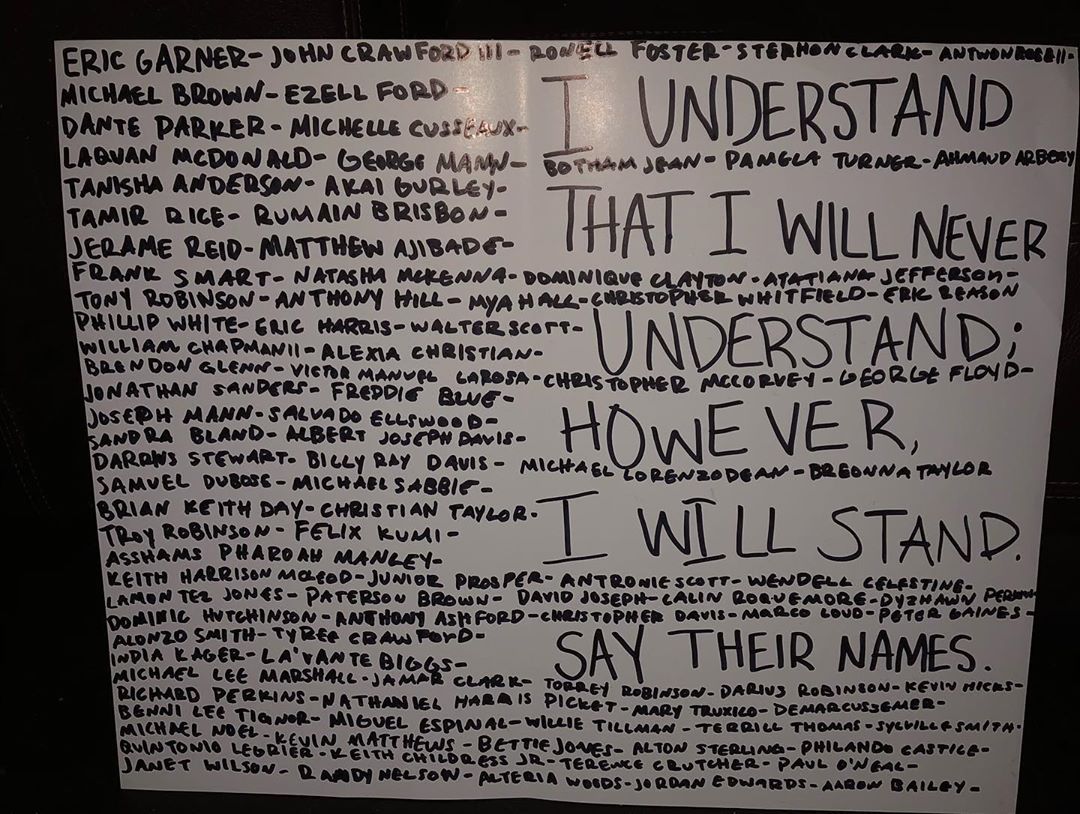 ERIC GARNER- JOHN CRAWFORD III- RONELL FOSTER- STEPHON CLARK- ANTWON ROSE II-
MICHAEL BROWN- EZELL FORD-
I UNDERSTAND
DANTE PARKER- MICHELLE CUSSEAUX-
LAQUAN MCDONALD- GEORGE MANN- BOTHAM JEAN- PAMELA TURNER- AHMAUD ARBERY
TANISHA ANDERSON- AKAI GURLEY-
THAT I WILL NEVER
TAMIR RICE- RUMAIN BRISBON-
JERAME REID- MATTHEW AJIBADE-
FRANK SMART- NATASHA MCKENNA- DOMINIQUE CLAYTON- ATATIANA JEFFERSON-
TONY ROBINSON- ANTHONY HILL- MYA HALL- CHRISTOPHER WHITFIELD- ERIC REASON
PHILLIP WHITE- ERIC HARRIS- WALTER SCOTT-
UNDERSTAND;
WILLIAM CHAPMAN II- ALEXIA CHRISTIAN-
BRENDON GLENN- VICTOR MANUEL LAROSA- CHRISTOPHER MCCORVEY- GEORGE FLOYD-
JONATHAN SANDERS- FREDDIE BLUE-
JOSEPH MANN- SALVADO ELLSWOOD-
HOWEVER,
SANDRA BLAND- ALBERT JOSEPH DAVIS-
DARRIUS STEWART- BILLY RAY DAVIS- MICHAEL LORENZO DEAN- BREONNA TAYLOR
SAMUEL DUBOSE- MICHAEL SABBIE-
BRIAN KEITH DAY- CHRISTIAN TAYLOR-
I WILL STAND.
TROY ROBINSON- FELIX KUMI-
ASSHAMS PHAROAH MANLEY-
KEITH HARRISON MCLEOD- JUNIOR PROSPER- ANTRONIE SCOTT- WENDELL CELESTINE-
LAMONTEZ JONES- PATERSON BROWN- DAVID JOSEPH- CALIN ROQUEMORE- DYZHAWN
DOMINIC HUTCHINSON- ANTHONY ASHFORD- CHRISTOPHER DAVIS- MARCO LOUD- PETER GAINES-
ALONZO SMITH- TYREE CRAWFORD-
SAY THEIR NAMES.
INDIA KAGER- LA'VANTE BIGGS-
MICHAEL LEE MARSHALL- JAMAR CLARK- TORREY ROBINSON- DARIUS ROBINSON- KEVIN HICKS-
RICHARD PERKINS- NATHANIEL HARRIS PICKET- MARY TRUXILO- DEMARCUS SEMER-
BENNI LEE TIGNOR- MIGUEL ESPINAL- WILLIE TILLMAN- TERRILL THOMAS- SYLVILLE SMITH-
MICHAEL NOEL- KEVIN MATTHEWS- BETTIE JONES- ALTON STERLING- PHILANDO CASTILE-
QUINTONIO LEGRIER- KEITH CHILDRESS JR- TERENCE CRUTCHER- PAUL O'NEAL-
JANET WILSON- RANDY NELSON- ALTERIA WOODS- JORDAN EDWARDS- AARON BAILEY-